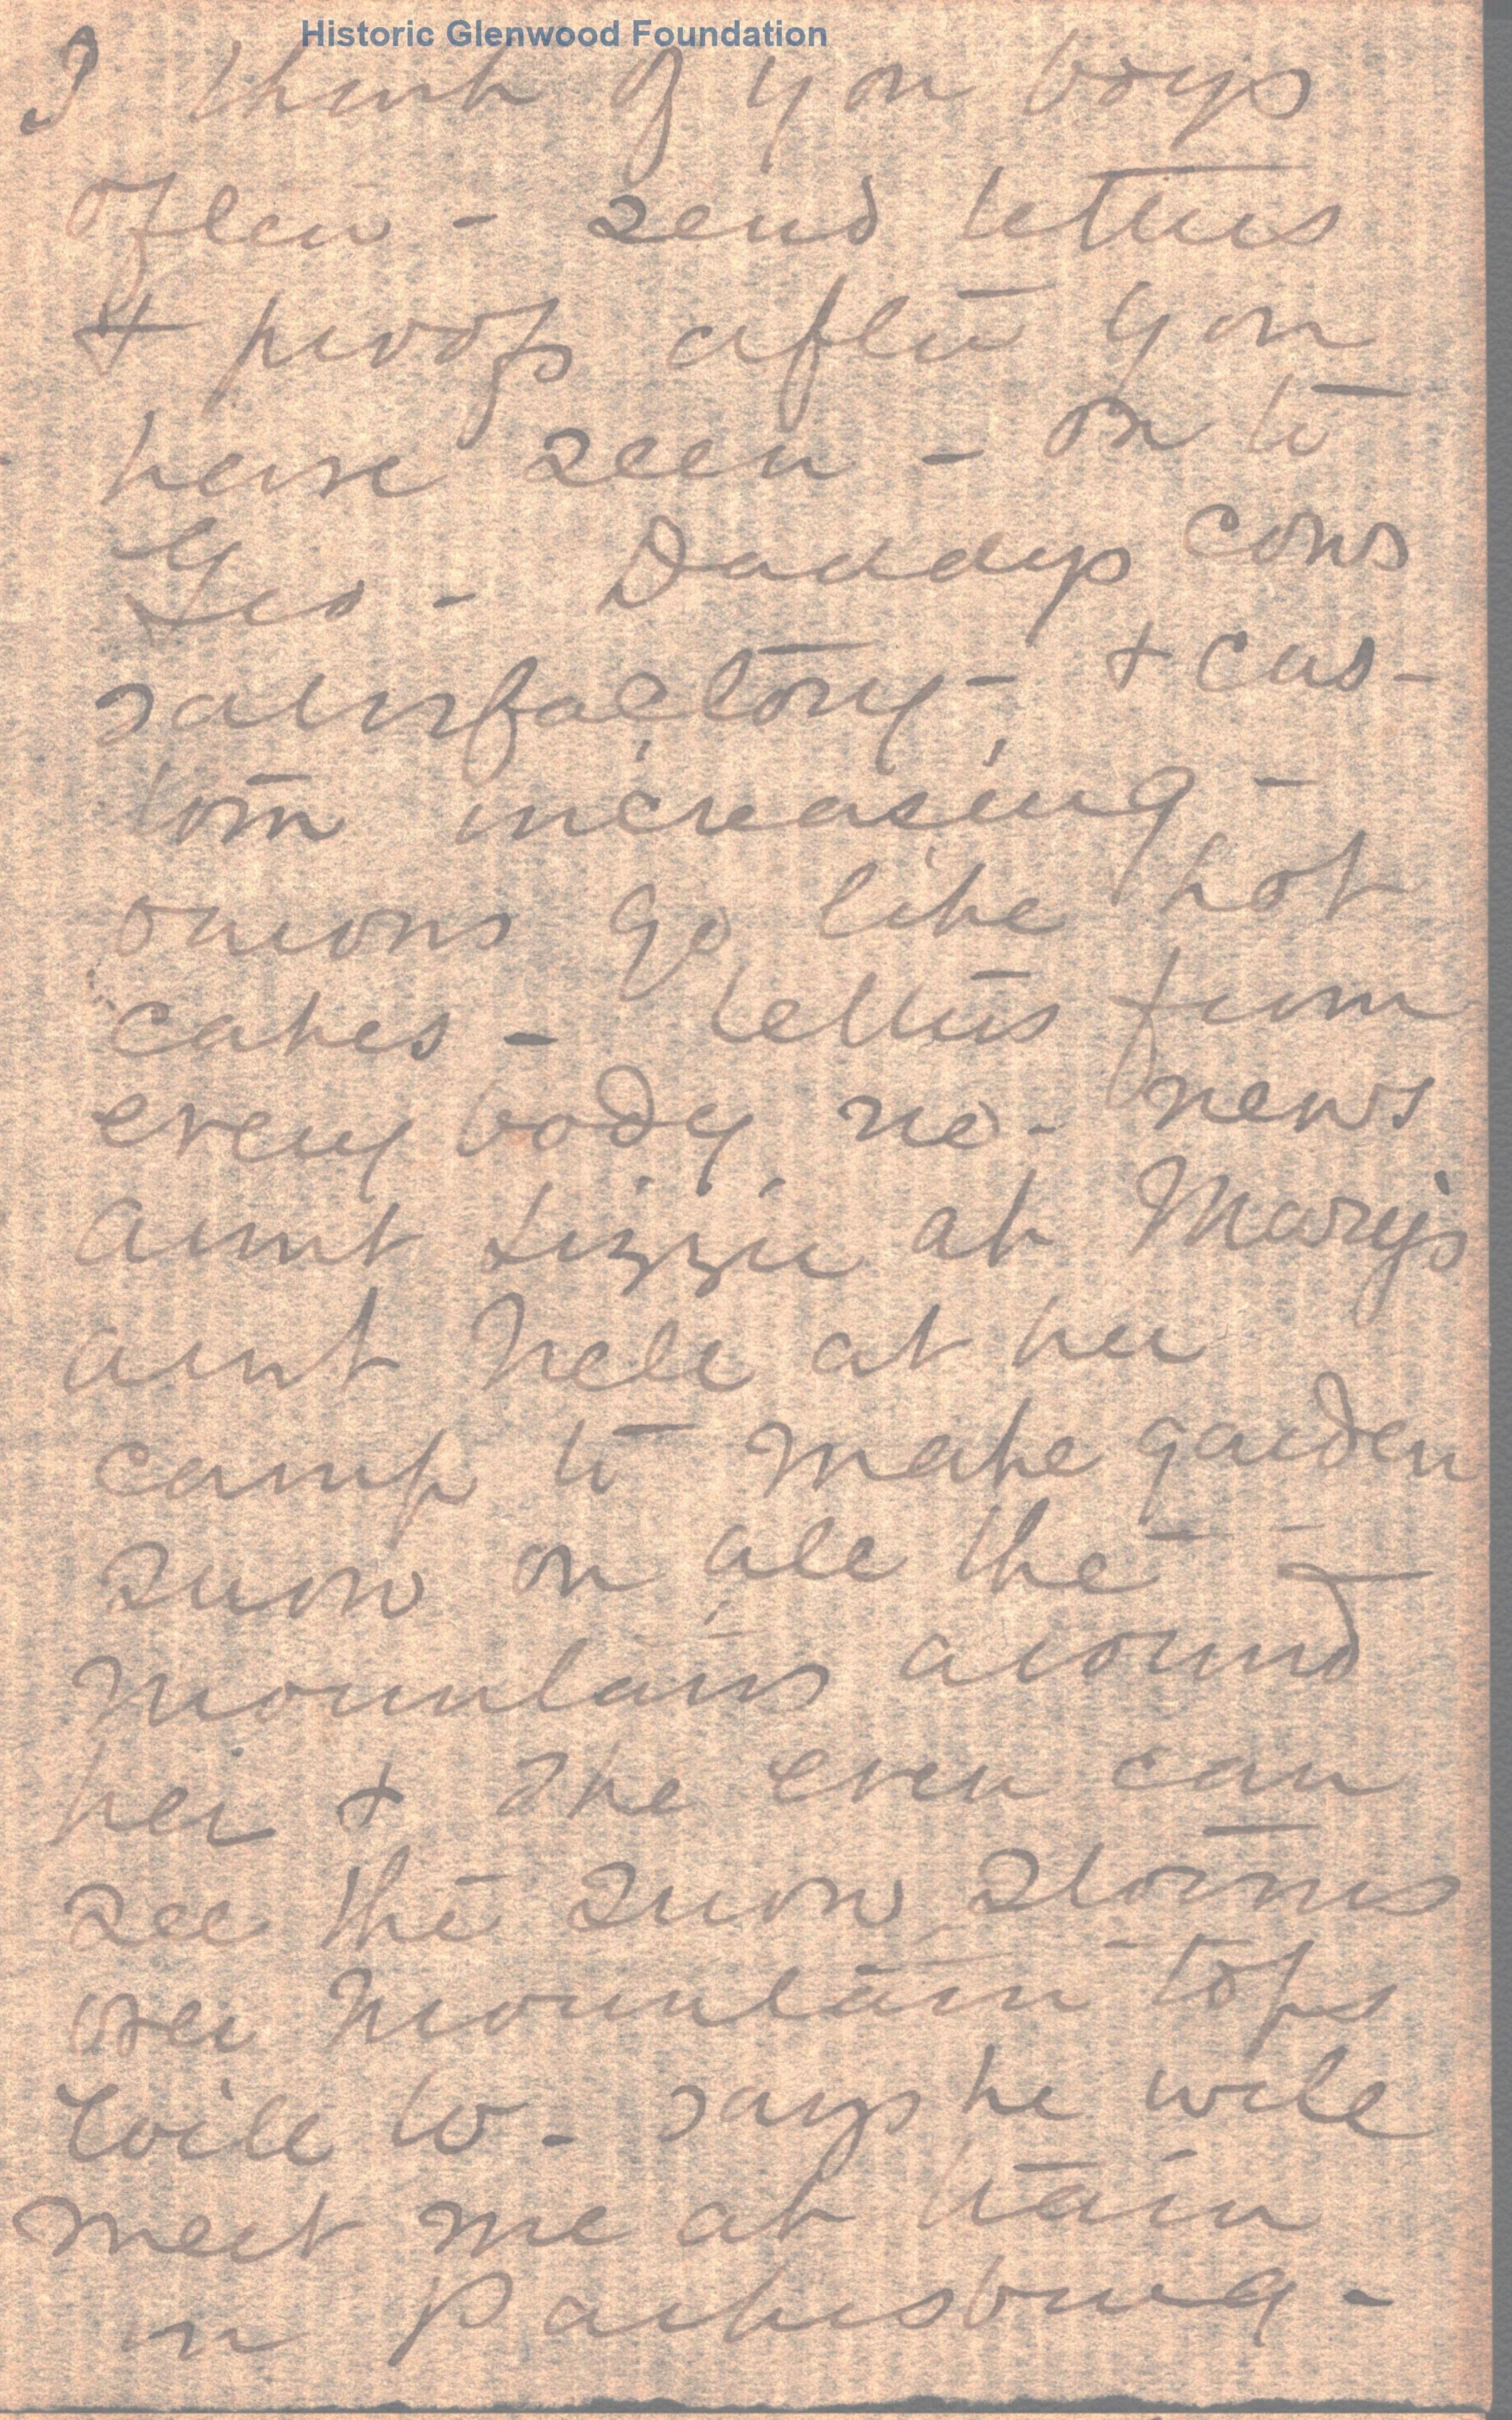 Historic Glenwood Foundation
I think of you boys
often - send letters
& proofs after you
have seen - on to
- Daddys cows
satisfactory - & cus-
tom increasing -
onions go like hot
cakes - letters from
every body no - news
aunt Lizzie at Mary's
aunt Nell at her
camp to make garden
snow on all the
mountains around
her & she even can
see the snow storms
over mountain tops
Will W - says he will
meet me at train
in Parkersburg -